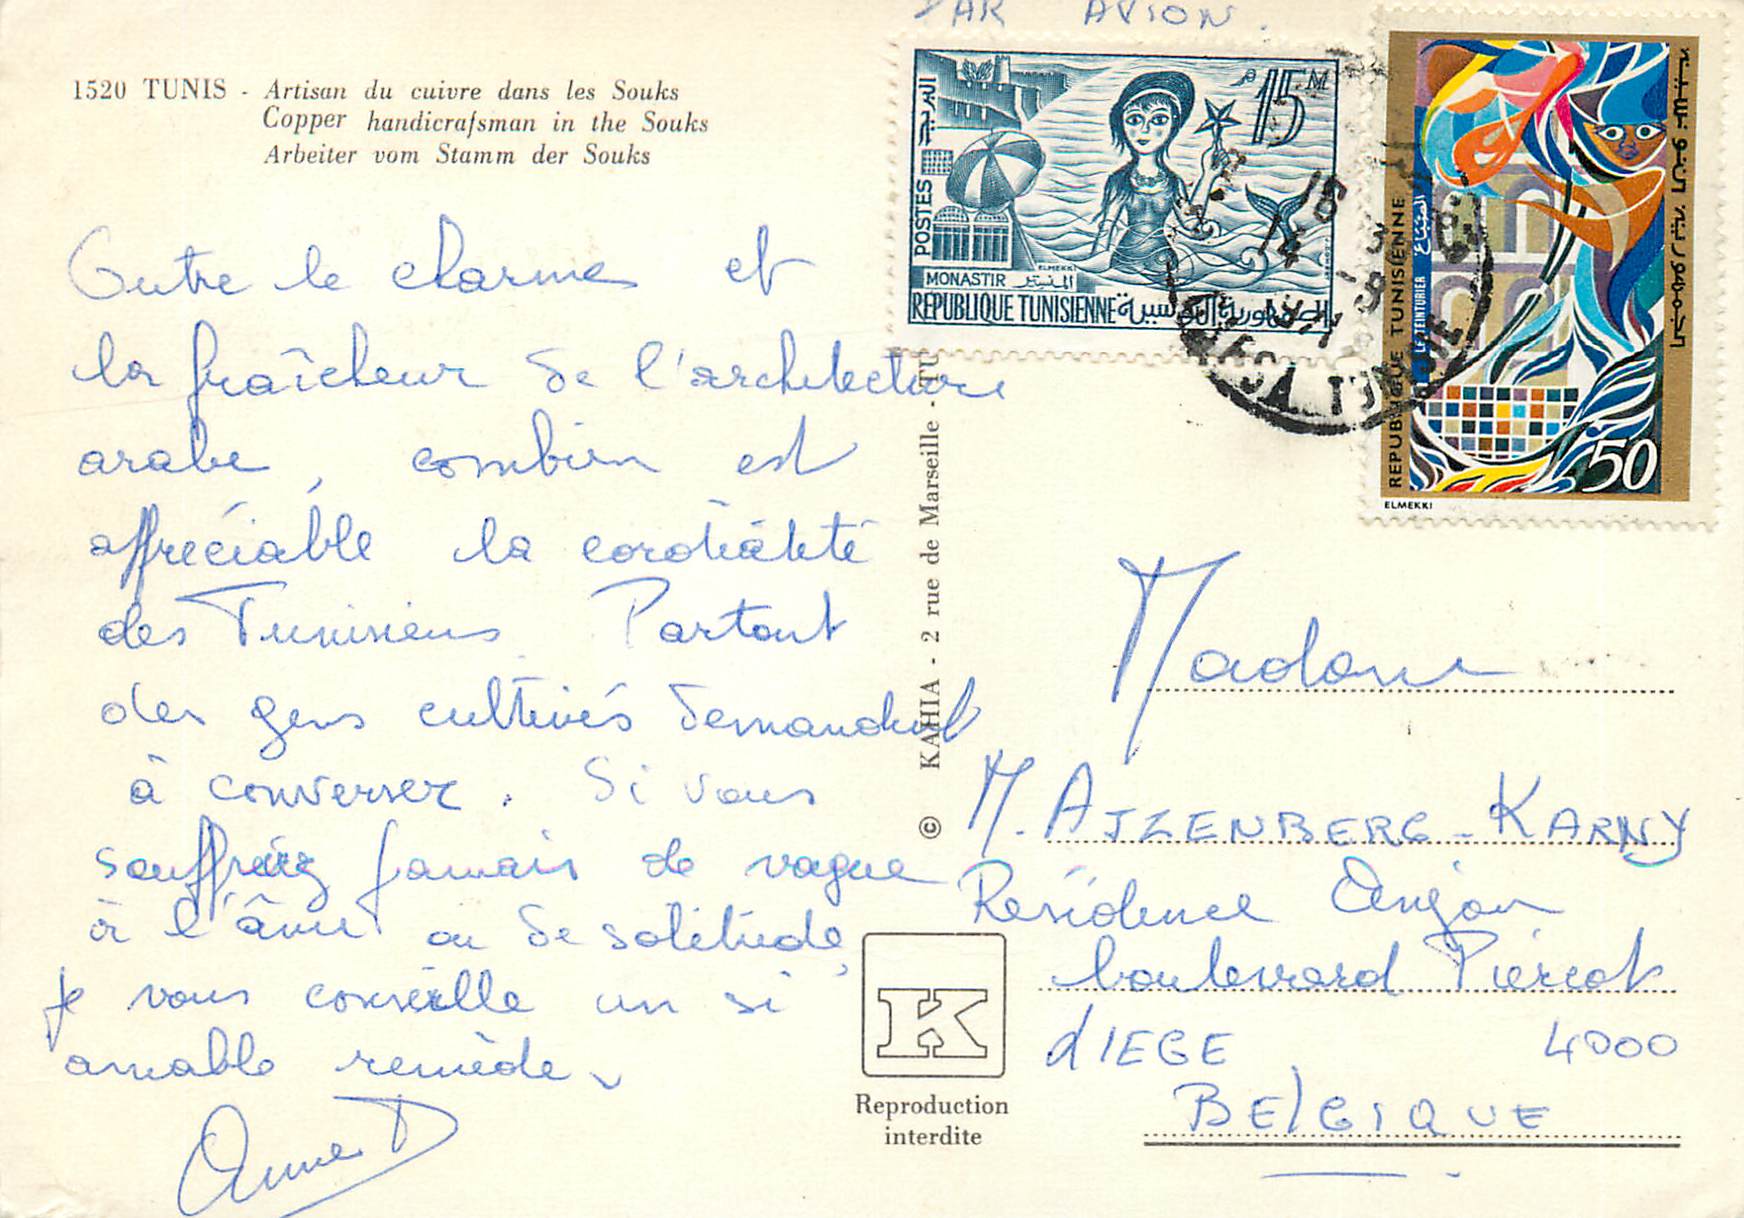 PAR AVION.
1520 TUNIS - Artisan du cuivre dans les Souks
Copper handicrafsman in the Souks
Arbeiter vom Stamm der Souks
Outre le charme et
la fraîcheur de l'architecture
arabe, combien est
appréciable la cordialité
des Tunisiens Partout
des gens cultivés demandent
à converser. Si vous
souffriez jamais de vague
à l'âme ou de solitude,
je vous conseille un si
aimable remède.
Anne D
© KAHIA - 2 rue de Marseille - TU
K
Reproduction
interdite
البريد
POSTES
15 M
MONASTIR المنستير
ELMEKKI
REPUBLIQUE TUNISIENNE الجمهورية التونسية
REPUBLIQUE TUNISIENNE
LE TEINTURIER الصباغ
الجمهورية التونسية
50
ELMEKKI
Madame
M. AJZENBERG-KARNY
Résidence Anjou
boulevard Piercot
LIEGE 4000
BELGIQUE